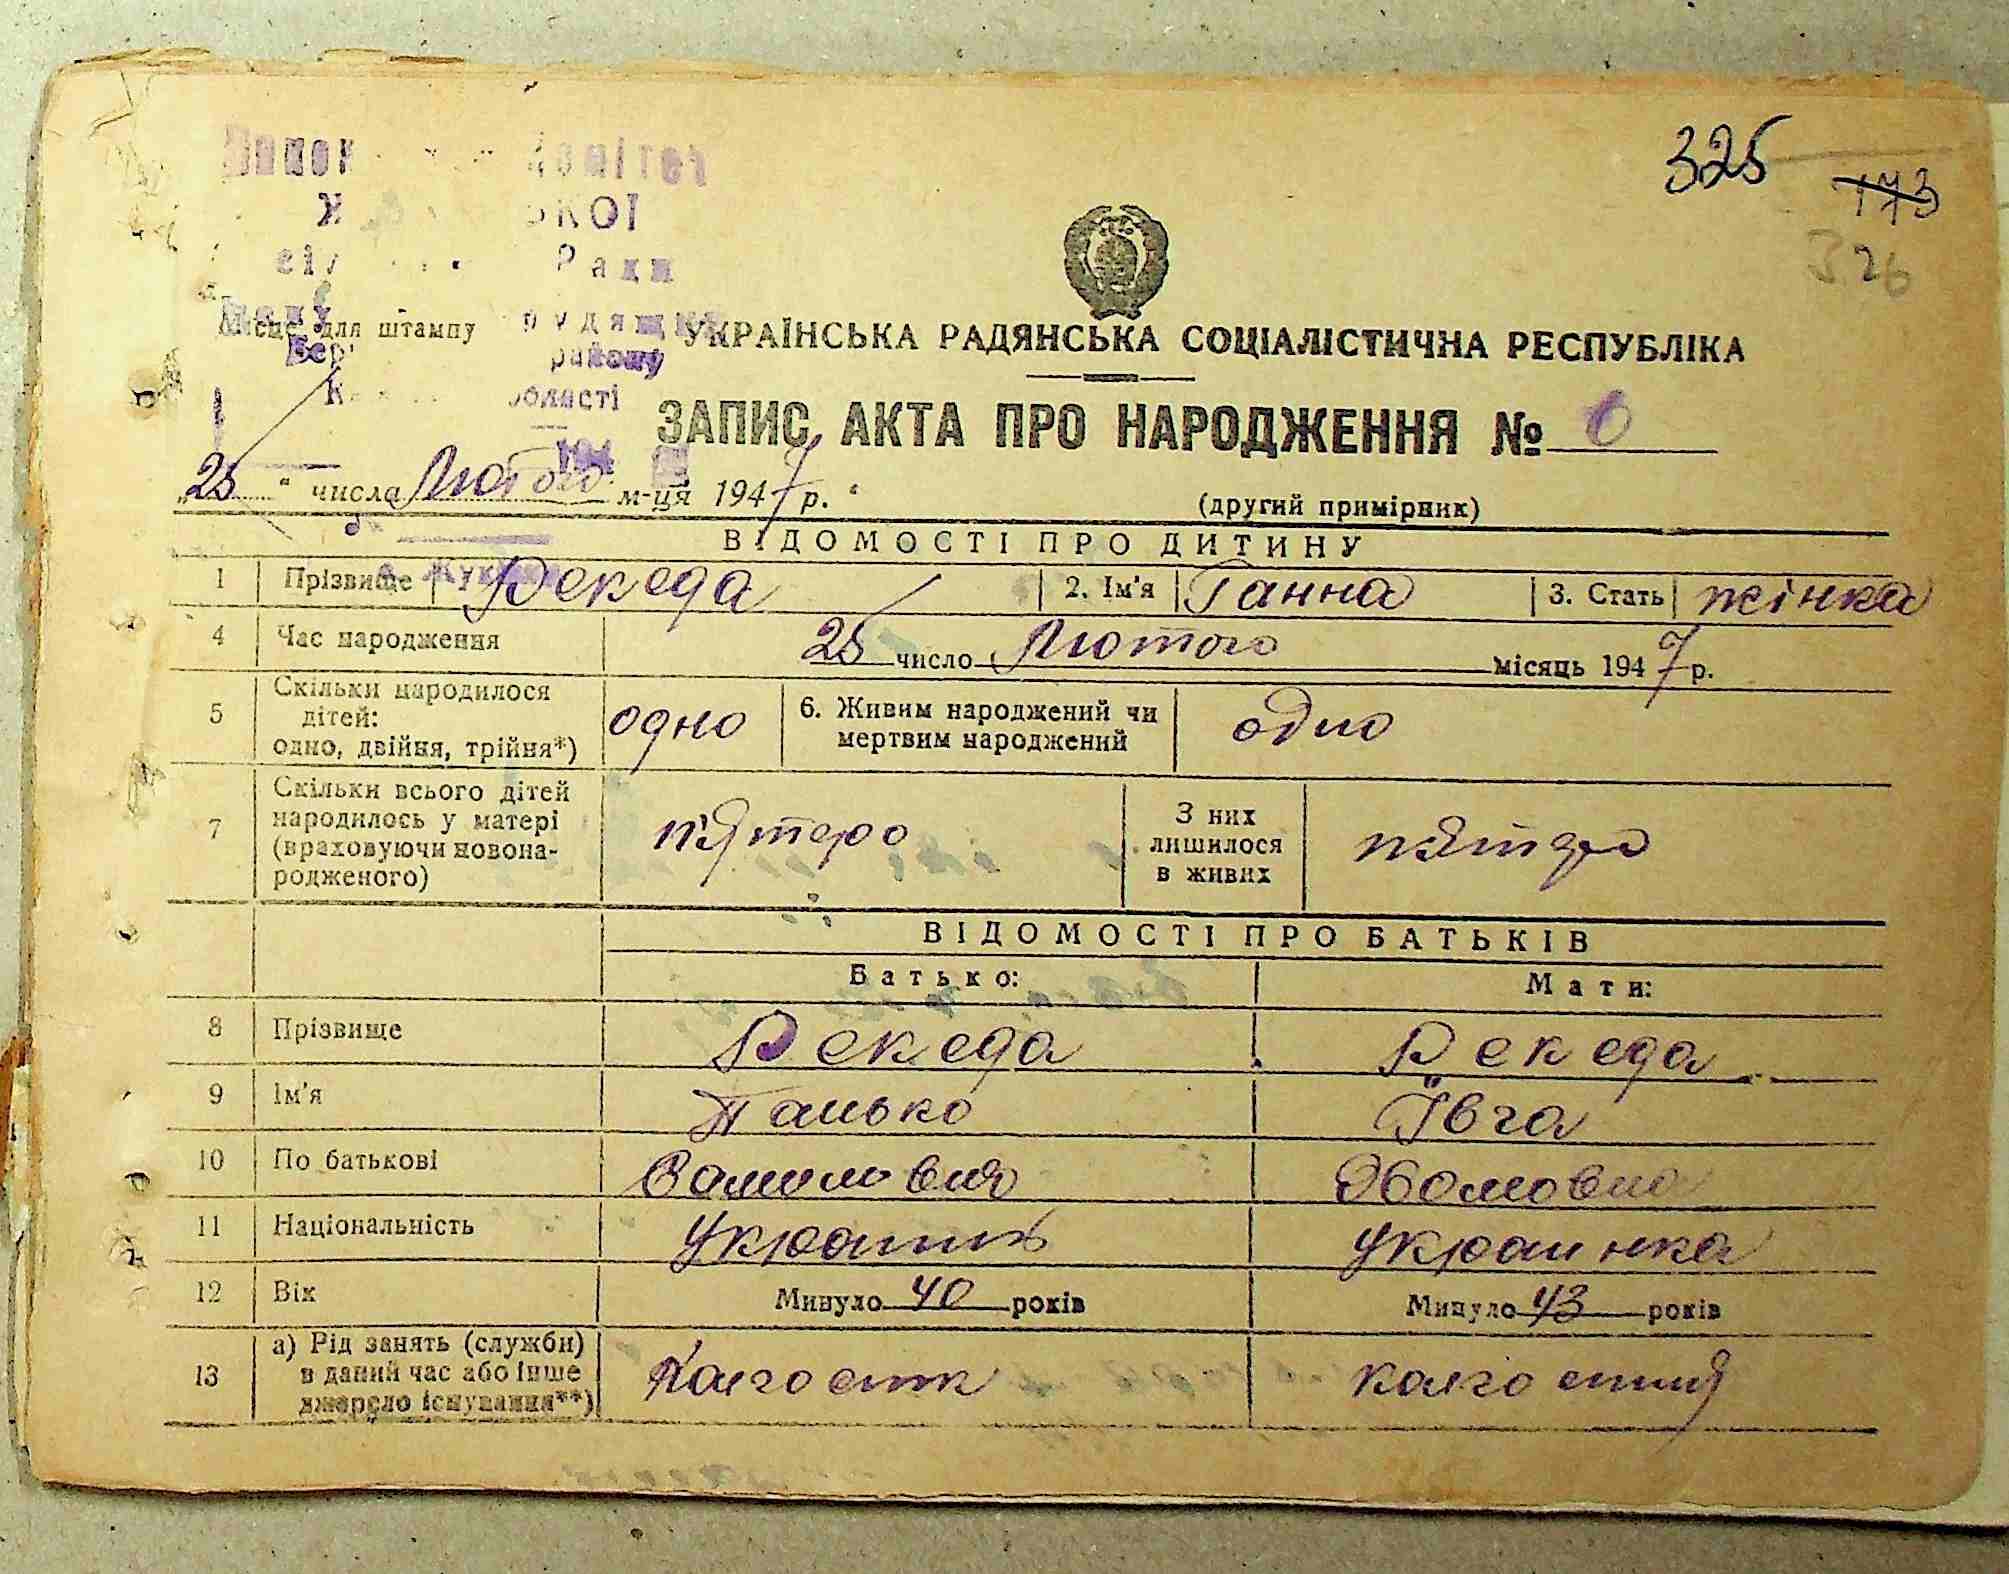 325
173
326
комітет
Ради
Місце для штампу
району
області
194
УКРАЇНСЬКА РАДЯНСЬКА СОЦІАЛІСТИЧНА РЕСПУБЛІКА
ЗАПИС АКТА ПРО НАРОДЖЕННЯ № 6
„25“ числа Лютого м-ця 1947 р.
(другий примірник)
ВІДОМОСТІ ПРО ДИТИНУ
1 Прізвище Рекеда 2. Ім'я Ганна 3. Стать жінка
4 Час народження 25 число Лютого місяць 1947 р.
5 Скільки народилося дітей: одно, двійня, трійня*) одно 6. Живим народжений чи мертвим народжений одно
7 Скільки всього дітей народилось у матері (враховуючи новонародженого) п'ятеро З них лишилося в живих п'ятеро
ВІДОМОСТІ ПРО БАТЬКІВ
Батько: Мати:
8 Прізвище Рекеда Рекеда
9 Ім'я Панько Ївга
10 По батькові
11 Національність українка
12 Вік Минуло 40 років Минуло 43 років
13 а) Рід занять (служби) в даний час або інше джерело існування**) Колгоспник